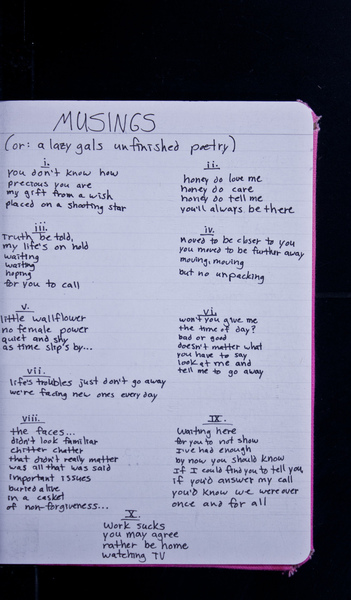 MUSINGS
(or: a lazy gals unfinished poetry)
i.
you don't know how
precious you are
my gift from a wish
placed on a shooting star
ii.
honey do love me
honey do care
honey do tell me
you'll always be there
iii.
Truth be told,
my life's on hold
waiting
waiting
hoping
for you to call
iv.
moved to be closer to you
you moved to be further away
moving, moving
but no unpacking
v.
little wallflower
no female power
quiet and shy
as time slip's by...
vi.
won't you give me
the time of day?
bad or good
doesn't matter what
you have to say
look at me and
tell me to go away
vii.
life's troubles just don't go away
we're facing new ones every day
viii.
the faces...
didn't look familiar
chitter chatter
that didn't really matter
was all that was said
important issues
buried alive
in a casket
of non-forgiveness...
IX.
Waiting here
for you to not show
I've had enough
by now you should know
If I could find you to tell you
if you'd answer my call
you'd know we were over
once and for all
X.
Work sucks
you may agree
rather be home
watching TV